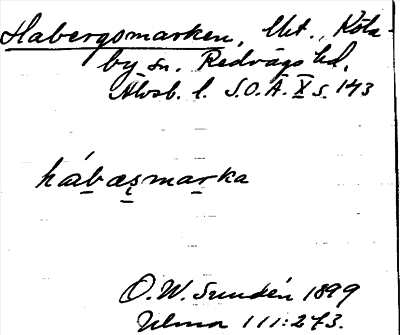 Habergsmarken, Utt., Köla-
by sn. Redvägs hd.
Älvsb. l. S.O.Ä. X s. 143
hábæşmarka
O.W. Sundén 1899
Ulma 111:273.